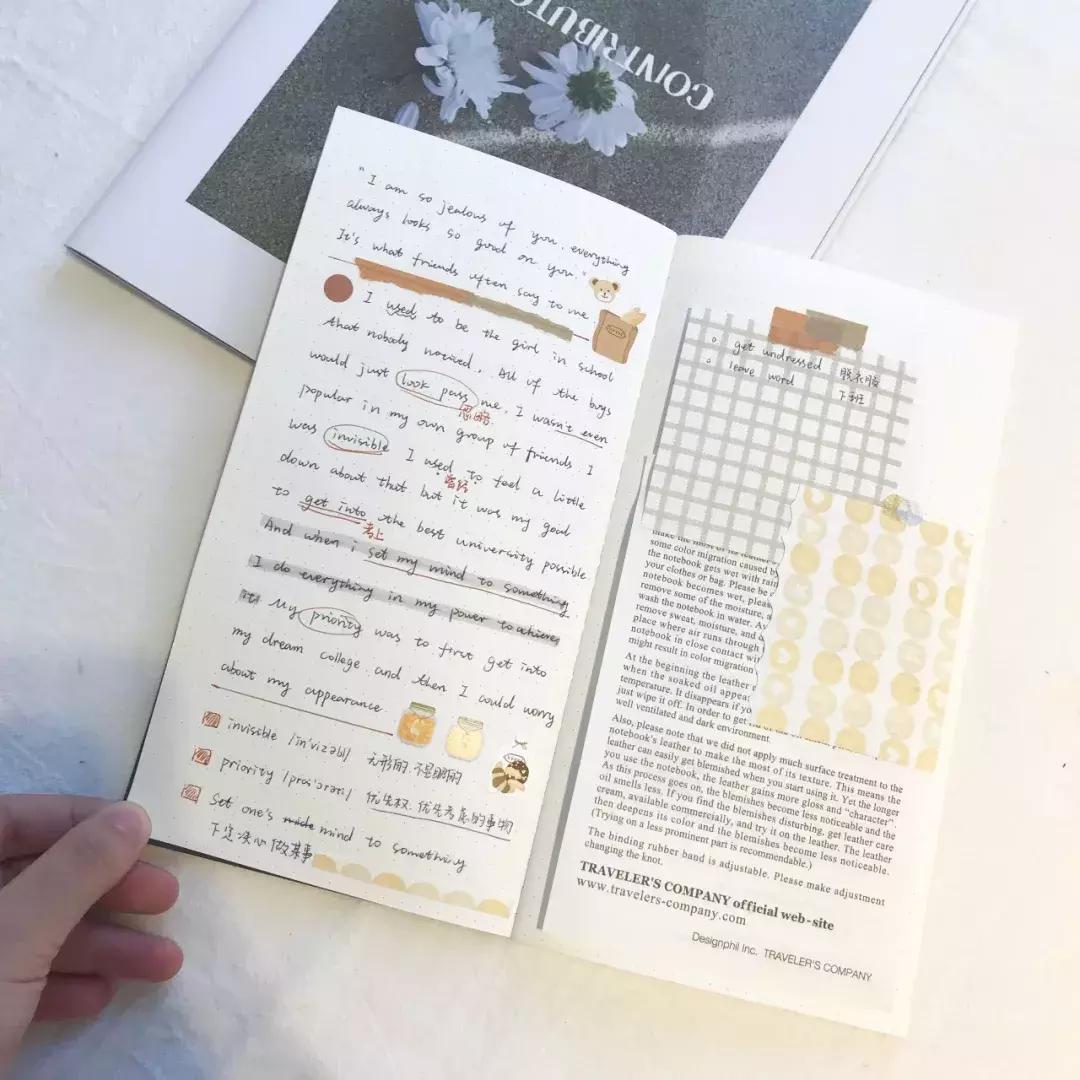 CONTRIBUTO
" I am so jealous of you, everything
always looks so good on you."
It's what friends often say to me.
I used to be the girl in school
that nobody noticed. All of the boys
would just look pass me. I wasn't even
忽略
popular in my own group of friends. I
was invisible I used to feel a little
down about that but it was my goal
to get into the best university possible
考上
And when i set my mind to something
I do everything in my power to achieve
it! My priority was to first get into
my dream college and then I could worry
about my appearance.
invisible /ɪn'vɪzəbl/ 无形的.不是眼的
priority /praɪ'ɒrəti/ 优先权.优先考虑的事物
Set one's made mind to something
下定决心做某事
get undressed 脱衣服
leave word 下班
make the most of its leather
some color migration caused b
the notebook gets wet with rain
your clothes or bag. Please be
notebook becomes wet, pleas
remove some of the moisture, a
wash the notebook in water. Av
remove sweat, moisture, and
place where air runs through
notebook in close contact wi
might result in color migration
At the beginning the leather
when the soaked oil appea
temperature. It disappears if yo
just wipe it off. In order to get
well ventilated and dark environment.
Also, please note that we did not apply much surface treatment to the
notebook's leather to make the most of its texture. This means the
leather can easily get blemished when you start using it. Yet the longer
you use the notebook, the leather gains more gloss and "character".
As this process goes on, the blemishes become less noticeable and the
oil smells less. If you find the blemishes disturbing, get leather care
cream, available commercially, and try it on the leather. The leather
then deepens its color and the blemishes become less noticeable.
(Trying on a less prominent part is recommendable.)
The binding rubber band is adjustable. Please make adjustment
changing the knot.
TRAVELER'S COMPANY official web-site
www.travelers-company.com
Designphil Inc. TRAVELER'S COMPANY